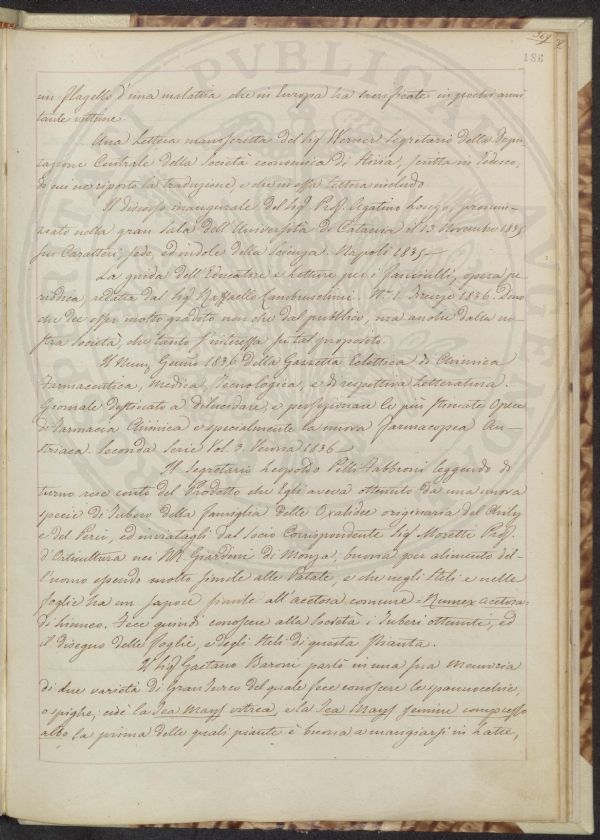 369
186
un flagello d'una malattia che in Europa ha sacrificate in pochi anni
tante vittime.
Una Lettera manoscritta del Sig. Werner Segretario della Depu-
tazione Centrale della Società economica di Assia, scritta in Tedesco,
di cui ne riporto la traduzione, e che in essa Lettera includo.
Il discorso inaugurale del Sig. Prof. Agatino Longo pronun-
ziato nella gran sala dell'Università di Catania il 13 Novembre 1835
su Caratteri, sede, ed indole della Scienza. Napoli 1835.
La guida dell'Educatore e letture per i fanciulli, opera pe-
riodica redatta dal Sig. Raffaello Lambruschini. N. 1. Firenze 1836. Dono
che dee esser molto gradito non che dal pubblico, ma anche dalla no-
stra Società, che tanto s'interessa su tal proposito.
Il Num. Genn. 1836 della Gazzetta Eclettica di Chimica
Farmaceutica, Medica, Tecnologica, e di respettiva Letteratura.
Giornale destinato a dilucidare, e perfezionare le più stimate Opere
di Farmacia Chimica e specialmente la nuova Farmacopea Au-
striaca. Seconda Serie Vol. 3. Verona 1836.
Il Segretario Leopoldo Pelli Fabbroni leggendo di
turno rese conto del Prodotto che Egli aveva ottenuto da una nuova
specie di Tubero della famiglia delle Oxalidee originaria del Chily
e del Perù, ed inviatagli dal Socio Corrispondente Sig. Moretti Prof.
d'Orticultura nei RR. Giardini di Monza, buona per alimento del-
l'uomo essendo molto simile alle Patate, e che negli steli e nelle
foglie ha un sapore simile all'acetosa comune = Rumex acetosa =
di Linneo. Fece quindi conoscere alla Società i Tuberi ottenuti, ed
il disegno delle foglie, e degli steli di questa Pianta.
Il Sig. Gaetano Baroni parlò in una sua Memoria
di due varietà di Gran Turco del quale fece conoscere le spannocchie,
o spighe, cioè la Zea Mays vitrea, e la Zea Mays semine compresso
albo. La prima delle quali piante è buona a mangiarsi in latte,